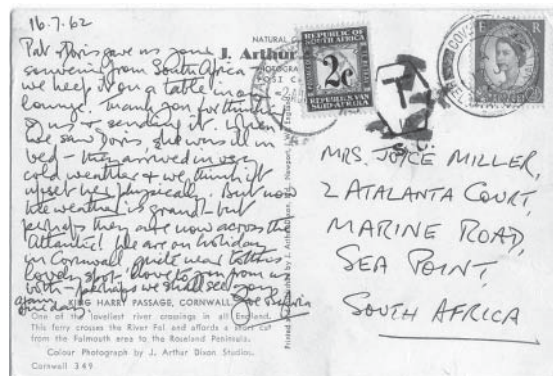 16.7.62
Pat & Doris gave us your
souvenir from South Africa -
we keep it on a table in our
lounge. Thank you for thinking
of us & sending it. When
we saw Doris, she was ill in
bed - they arrived in very
cold weather & we think it
upset her physically. But now
the weather is grand - but
perhaps they are now across the
Atlantic! We are on holiday
in Cornwall, quite near to this
lovely spot - love to you from us
both - perhaps we shall see you
again
one day.
KING HARRY PASSAGE, CORNWALL.
One of the loveliest river crossings in all England.
This ferry crosses the River Fal and affords a short cut
from the Falmouth area to the Roseland Peninsula.
Colour Photograph by J. Arthur Dixon Studios.
Cornwall 349
NATURAL
J. Arthur
POST
REPUBLIC OF
SOUTH AFRICA
2c
REPUBLIEK VAN
SUID-AFRIKA
T
E R
MRS. JOYCE MILLER,
2 ATALANTA COURT,
MARINE ROAD,
SEA POINT,
SOUTH AFRICA